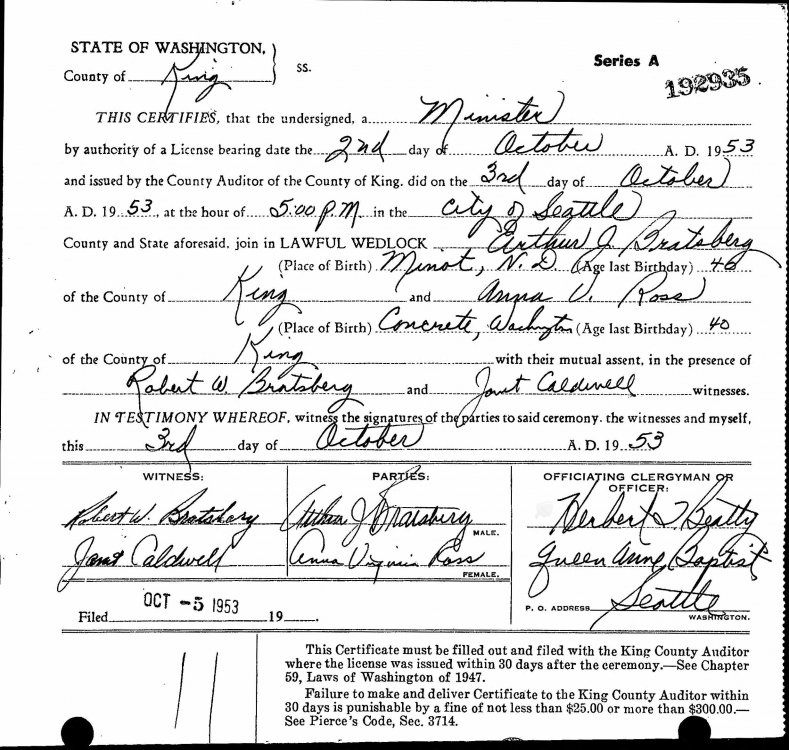 STATE OF WASHINGTON, } ss. Series A
County of King 192935
THIS CERTIFIES, that the undersigned, a Minister
by authority of a License bearing date the 2nd day of October A. D. 1953
and issued by the County Auditor of the County of King. did on the 3rd day of October
A. D. 19 53, at the hour of 5:00 P.M. in the city of Seattle
County and State aforesaid. join in LAWFUL WEDLOCK Arthur J. Bratsberg
(Place of Birth) Minot, N. D. (Age last Birthday) 46
of the County of King and Anna V. Ross
(Place of Birth) Concrete, Washington (Age last Birthday) 40
of the County of King with their mutual assent, in the presence of
Robert W. Bratsberg and Janet Caldwell witnesses.
IN TESTIMONY WHEREOF, witness the signatures of the parties to said ceremony. the witnesses and myself,
this 3rd day of October A. D. 19 53
WITNESS: PARTIES: OFFICIATING CLERGYMAN OR
OFFICER:
Robert W. Bratsberg Arthur J Bratsberg Herbert J Beatty
MALE.
Janet Caldwell Anna Virginia Ross Queen Anne Baptist
FEMALE.
OCT -5 1953 P. O. ADDRESS Seattle
Filed 19 . WASHINGTON.
This Certificate must be filled out and filed with the King County Auditor
where the license was issued within 30 days after the ceremony.—See Chapter
59, Laws of Washington of 1947.
Failure to make and deliver Certificate to the King County Auditor within
30 days is punishable by a fine of not less than $25.00 or more than $300.00.—
See Pierce's Code, Sec. 3714.